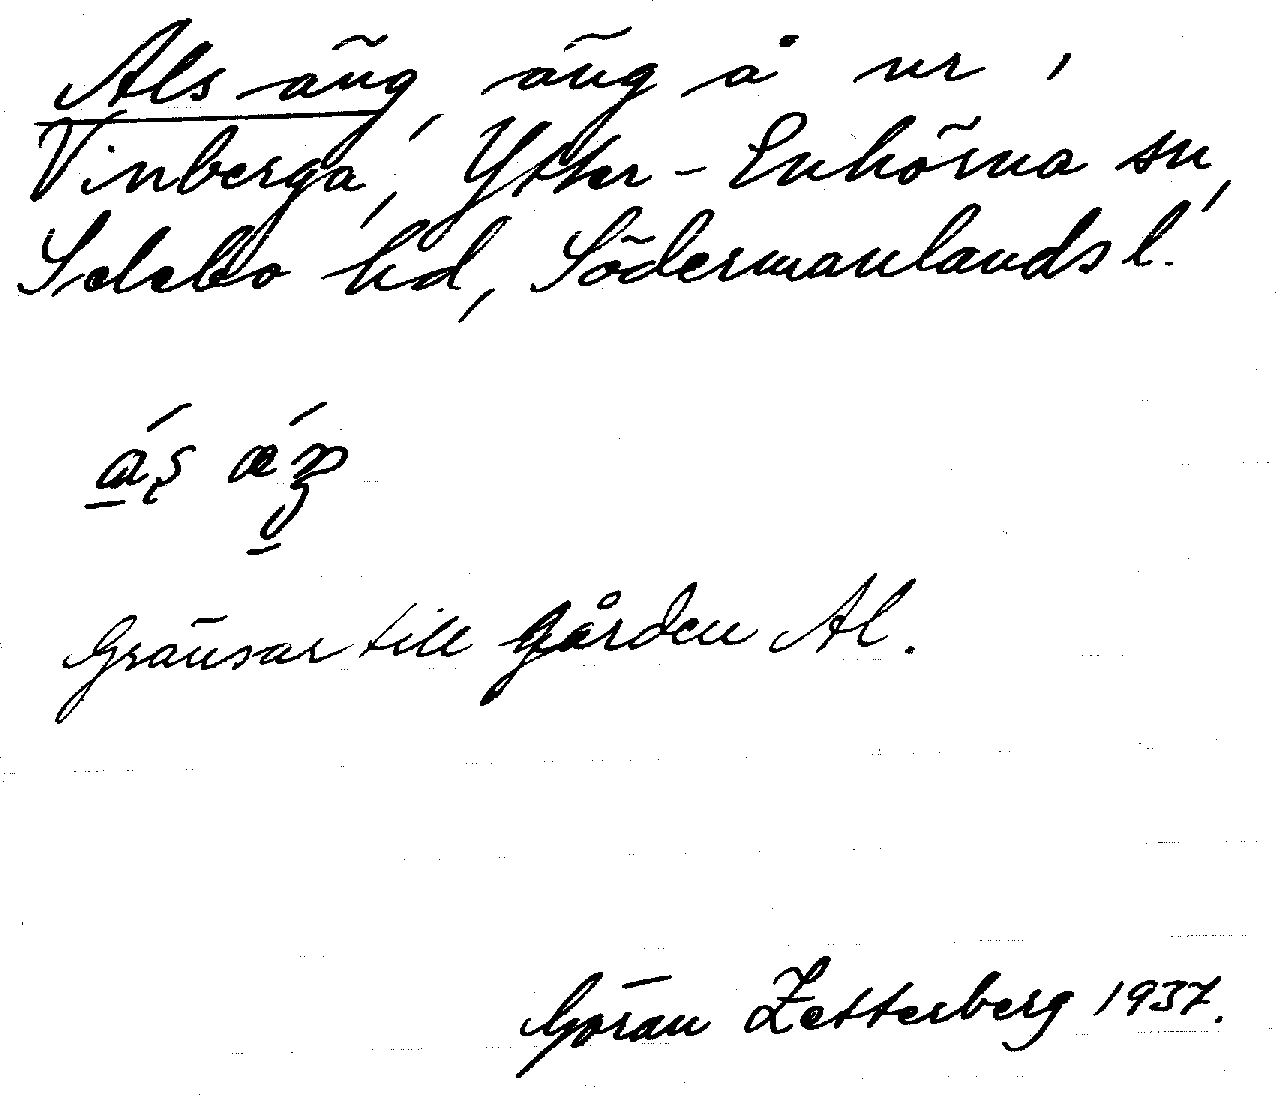 Als äng, äng å nr 1
Vinberga, Ytter-Enhörna sn,
Selebo hd, Södermanlands l.
Gränsar till gården Al.
Göran Zetterberg 1937.